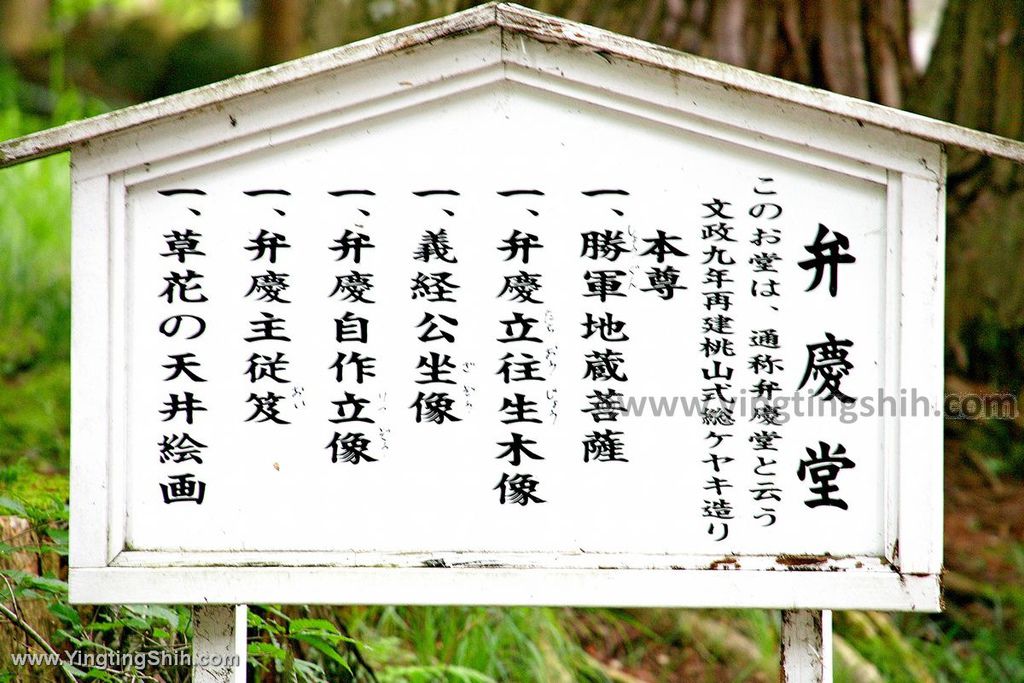 弁慶堂
このお堂は、通称弁慶堂と云う
文政九年再建桃山式総ケヤキ造り
本尊
一、勝軍地蔵菩薩
一、弁慶立往生木像
一、義経公坐像
一、弁慶自作立像
一、弁慶主従笈
一、草花の天井絵画
www.YingtingShih.com
www.yingtingshih.com